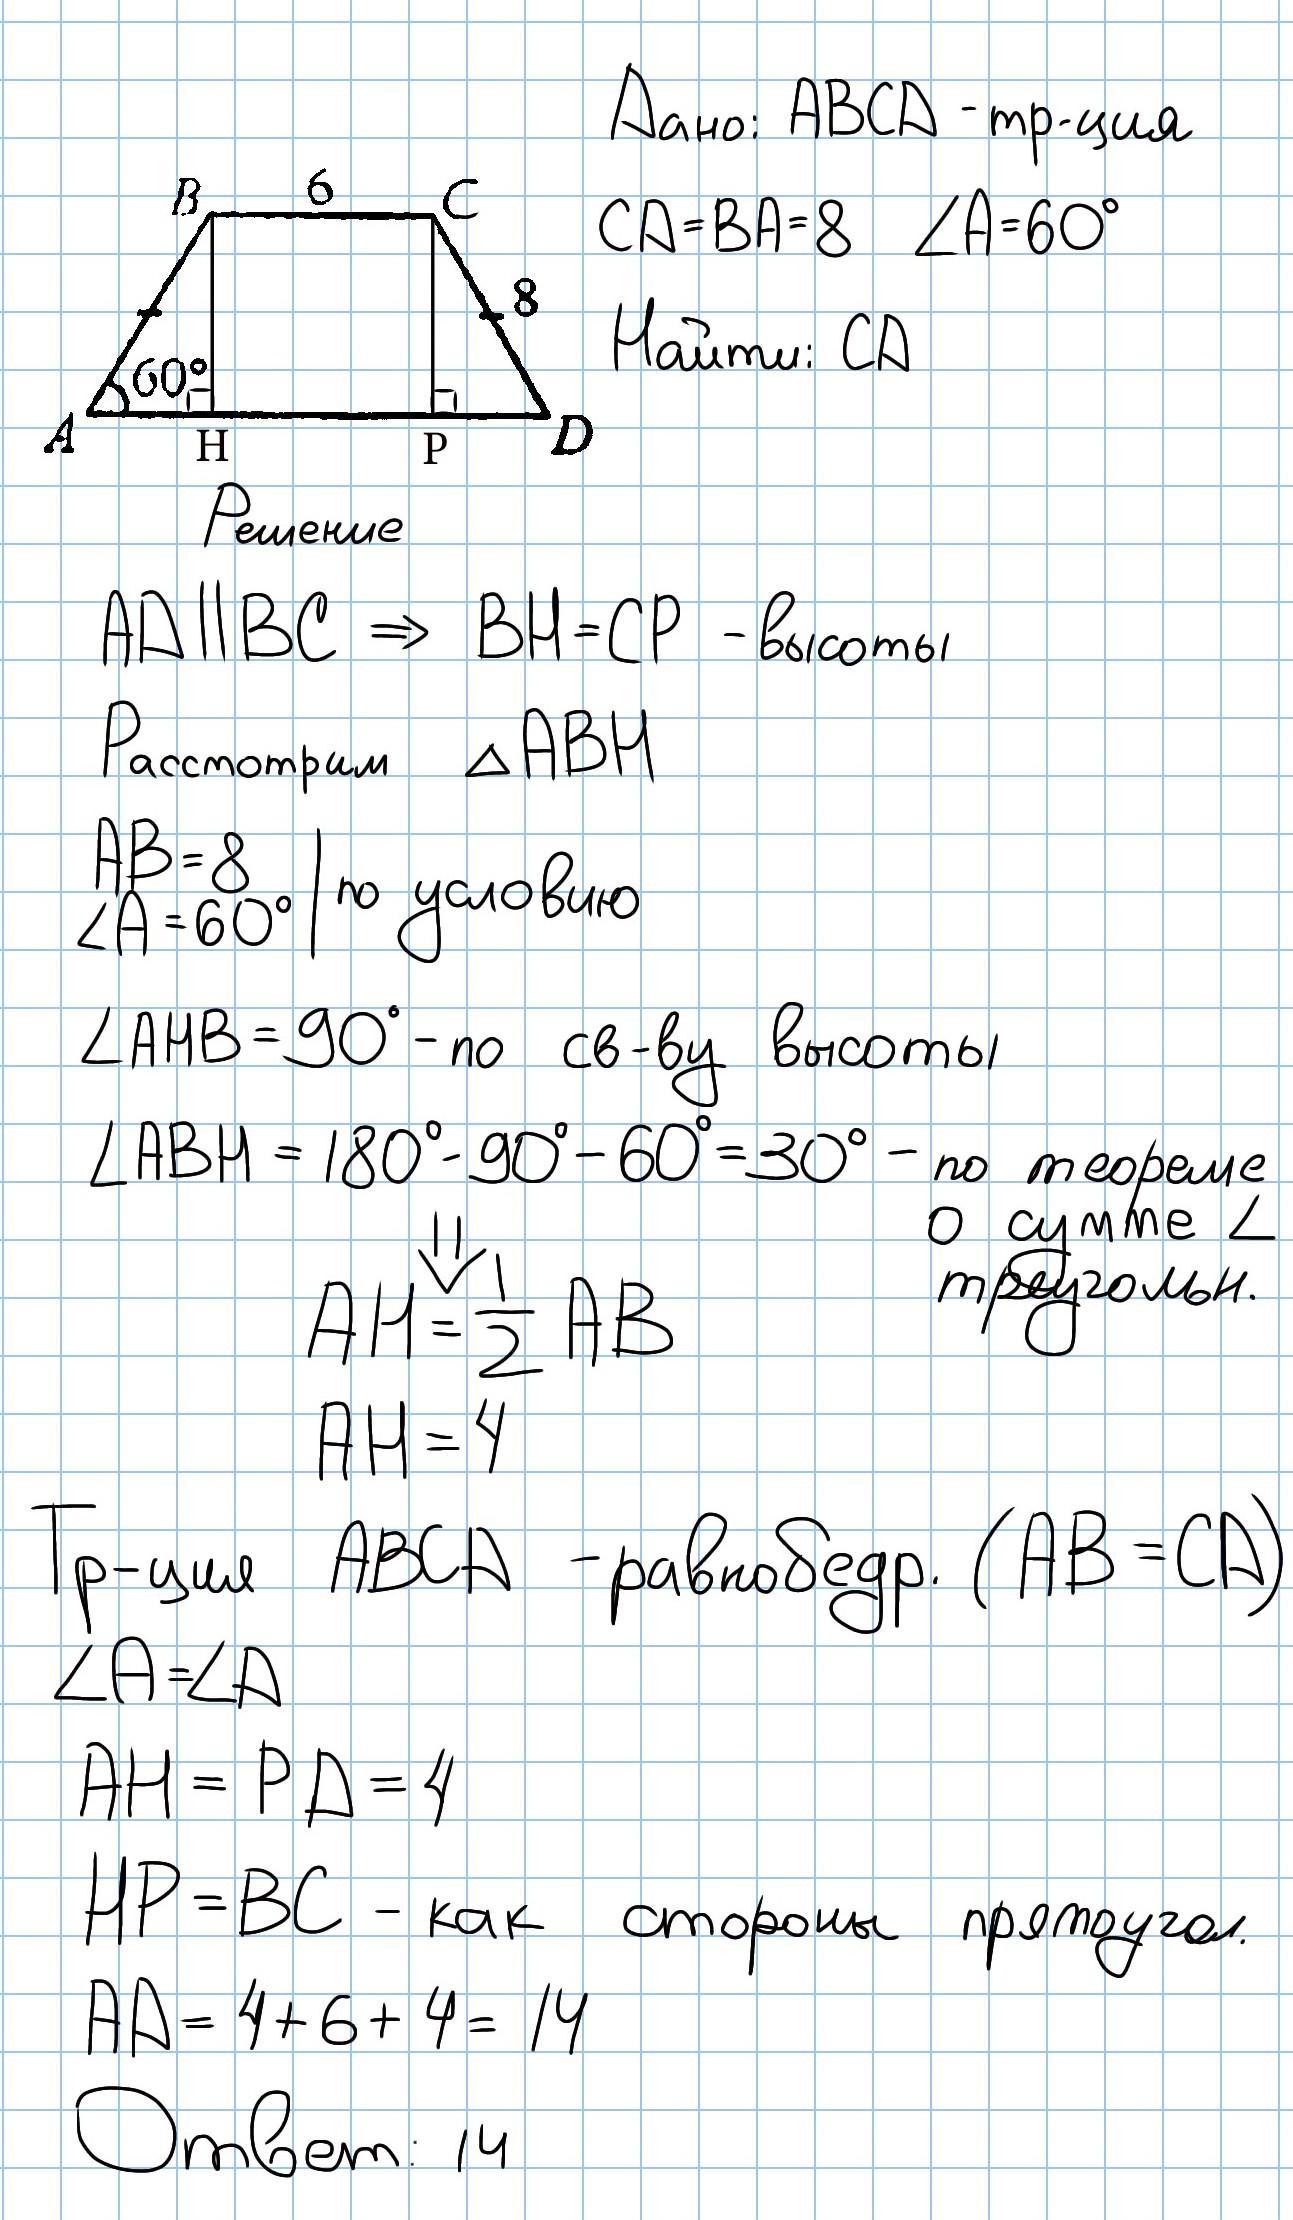 Дано: ABCD - тр-ция
CD=BA=8 ∠A=60°
Найти: CD
B 6 C
8
60°
A H P D
Решение
AD||BC ⇒ BH=CP - высоты
Рассмотрим △ABH
AB=8
∠A=60° | по условию
∠AHB=90° - по св-ву высоты
∠ABH = 180° - 90° - 60° = 30° - по теореме
о сумме ∠
треугольн.
⇓
AH = 1/2 AB
AH = 4
Тр-ция ABCD - равнобедр. (AB=CD)
∠A=∠D
AH = PD = 4
HP = BC - как стороны прямоугол.
AD = 4+6+4 = 14
Ответ: 14